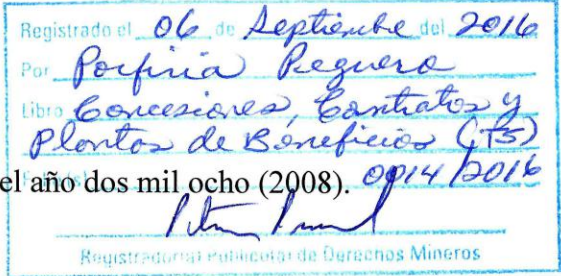 Registrado el 06 de Septiembre del 2016
Por Porfiria Reguera
Libro Concesiones, Contratos y
Plantas de Beneficios (T5)
0014/2016
el año dos mil ocho (2008).
Registrador(a) Público(a) de Derechos Mineros